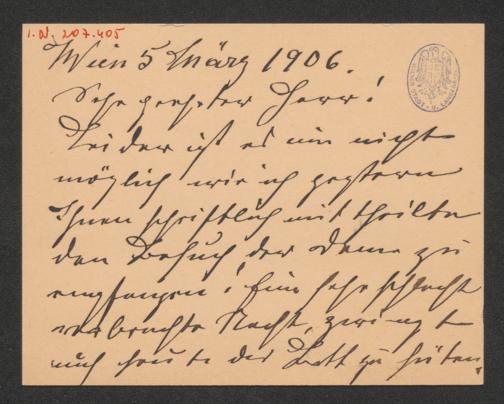 I.N. 207.405
Wien 5 März 1906.
Sehr geehrter Herr!
Leider ist es mir nicht
möglich wie ich gestern
Ihnen schriftlich mittheilte
den Besuch der Dame zu
empfangen! Eine sehr schlecht
verbrachte Nacht, zwingt
mich heute das Bett zu hüten,